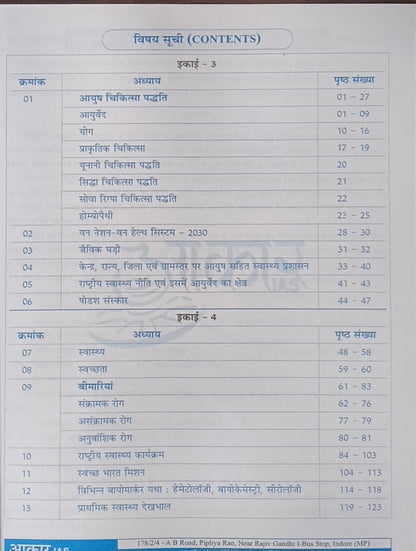 विषय सूची (CONTENTS)
इकाई - 3
क्रमांक अध्याय पृष्ठ संख्या
01 आयुष चिकित्सा पद्धति 01 - 27
आयुर्वेद 01 - 09
योग 10 - 16
प्राकृतिक चिकित्सा 17 - 19
यूनानी चिकित्सा पद्धति 20
सिद्धा चिकित्सा पद्धति 21
सोवा रिग्पा चिकित्सा पद्धति 22
होम्योपैथी 23 - 25
02 वन नेशन-वन हेल्थ सिस्टम - 2030 28 - 30
03 जैविक घड़ी 31 - 32
04 केन्द्र, राज्य, जिला एवं ग्रामस्तर पर आयुष सहित स्वास्थ्य प्रशासन 33 - 40
05 राष्ट्रीय स्वास्थ्य नीति एवं इसमें आयुर्वेद का क्षेत्र 41 - 43
06 षोडश संस्कार 44 - 47
इकाई - 4
क्रमांक अध्याय पृष्ठ संख्या
07 स्वास्थ्य 48 - 58
08 स्वच्छता 59 - 60
09 बीमारियां 61 - 83
संक्रामक रोग 62 - 76
असंक्रामक रोग 77 - 79
अनुवांशिक रोग 80 - 81
10 राष्ट्रीय स्वास्थ्य कार्यक्रम 84 - 103
11 स्वच्छ भारत मिशन 104 - 113
12 विभिन्न बायोमार्कर यथा : हेमेटोलॉजी, बायोकेमेस्ट्री, सीरोलॉजी 114 - 118
13 प्राथमिक स्वास्थ्य देखभाल 119 - 123
आकार IAS
178/2/4 - A B Road, Pipliya Rao, Near Rajiv Gandhi I-Bus Stop, Indore (MP)
आकार
IAS